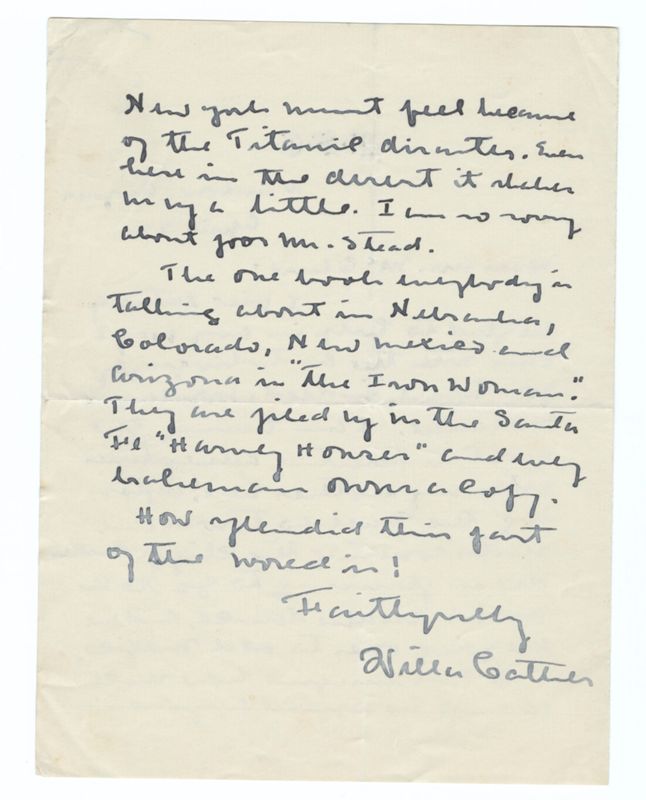 New York must feel because
of the Titanic disaster. Even
here in the desert it shakes
us up a little. I am so sorry
about poor Mr. Stead.
The one book everybody is
talking about in Nebraska,
Colorado, New Mexico and
Arizona is "The Iron Woman."
They are piled up in the Santa
Fe "Harvey Houses" and every
brakeman owns a copy.
How splendid this part
of the world is!
Faithfully
Willa Cather